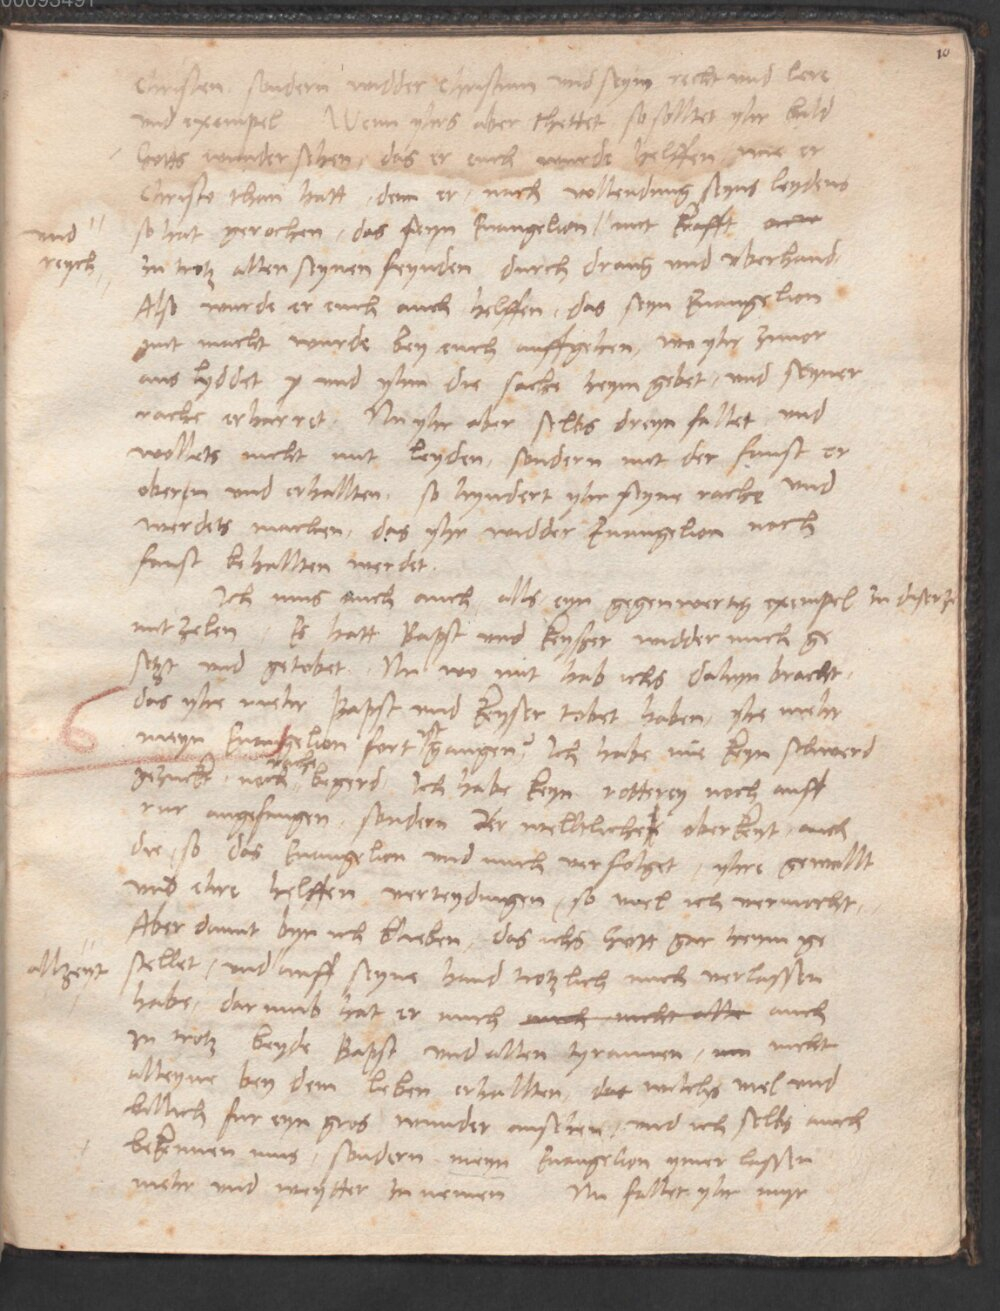 00093491
10
Christen sondern widder Christum und seyn recht und lere
und exempel Wenn yhrs aber thettet so solltet yhr bald
Gotts wunder sehen, das er euch wurde helffen, wie er
Christo than hatt, denn er, nach vollendung seyns leydens
und
reych
so hat gerochen, das seyn Euangelion mit krafft
ynn trotz allen seynen feynden durch drang und uberhand
Also wurde er euch auch helffen, das seyn Euangelion
mit macht wurde bey euch auffgehen, wo yhr zuuor
aus lyddet und yhm die sache heym gebet, und seyner
rache erharret. Nu yhr aber selbs dreyn fallet und
wollets nicht mit leyden, sondern mit der faust er
obern und erhallten, so hyndert yhr seyne rache und
werdets machen, das yhr widder Euangelion noch
faust behallten werdet.
Ich mus auch auch, alls eyn gegenwertig exempel
mit zelen, Es hatt Bapst und keyser widder mich ge
setzt und getobet. Nu wo mit hab ichs dahyn bracht,
das yhe mehr Bapst und keyser tobet haben, yhe mehr
meyn Euangelion fort ist gangen? Ich habe nie keyn schwerd
gezuckt, noch rache begerd. Ich habe keyn rotterey noch auff
rur angefangen, sondern der welltlichen oberkeyt, auch
die, so das Euangelion und mich verfolget, yhre gewallt
und ehre helffen verteydingen, so viel ich vermocht,
Aber damit byn ich blieben, das ichs Gott gar heym ge
allzeyt
stellet, und auff seyne hand trotzlich mich verlassen
habe, darumb hat er mich auch nicht alle auch
ynn trotz beyde Bapst und allen tyrannen, nicht
alleyne bey dem leben erhallten, das wilchs viel und
billich fur eyn gros wunder ansehen, und ich selbs auch
bekennen mus, sondern meyn Euangelion ymer lassen
mehr und weytter zunemen Nu fallet yhr myr